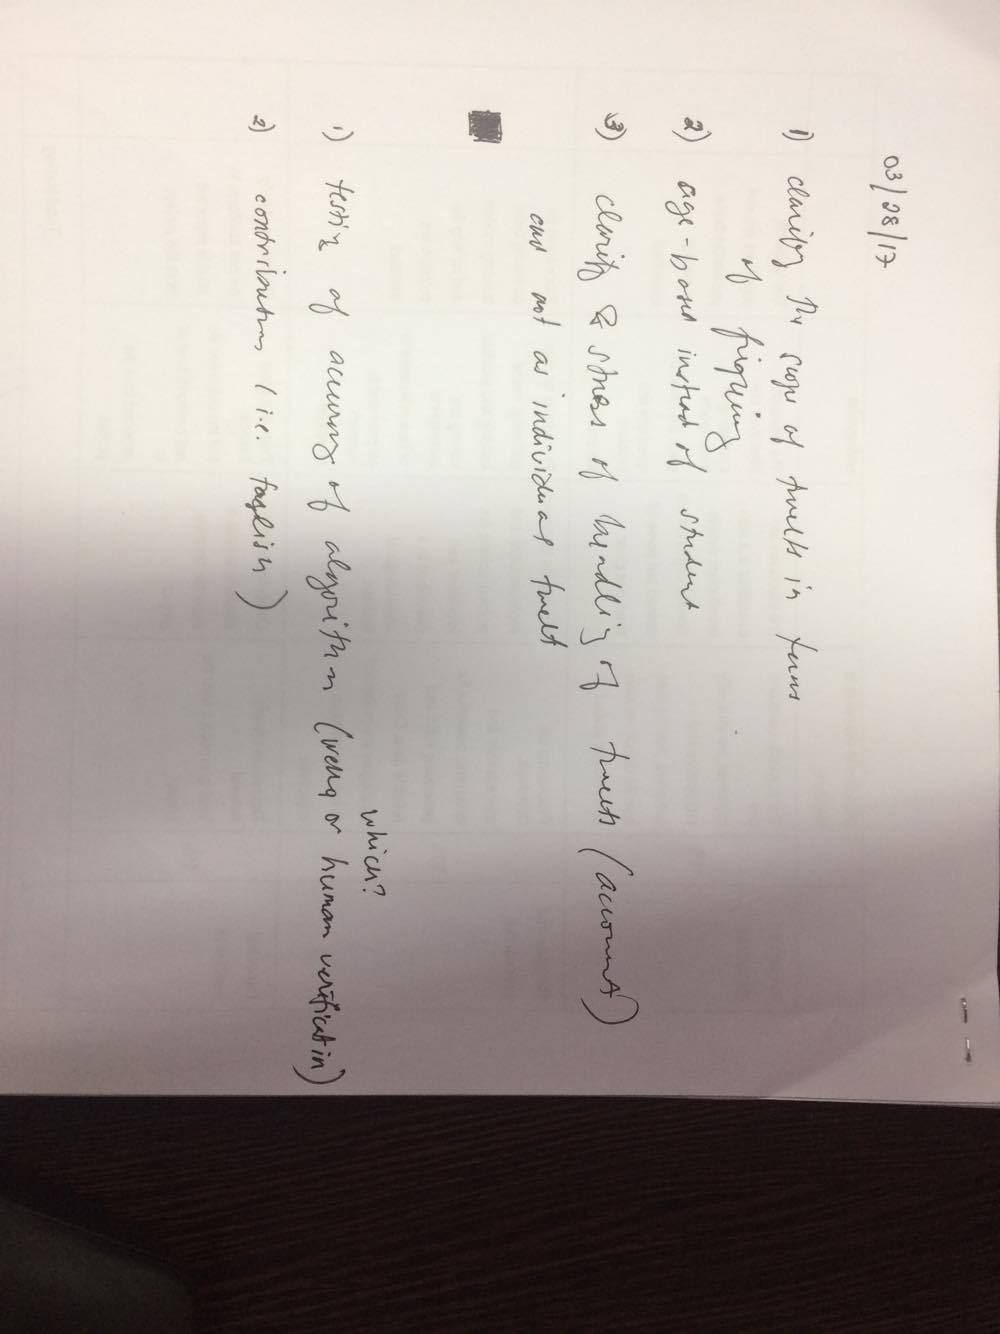 03/28/17
1) clarify the scope of tweets in terms
of
2) age-based instead of student
3) clarify & stress of handling of tweets (account)
and not as individual tweet
which?
1) testing of accuracy of algorithm (weka or human verification)
2) contributions (i.e. taglish)